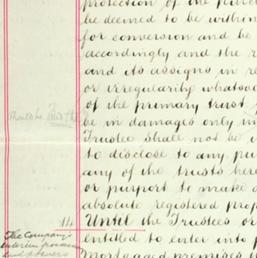 protection of the purc
be deemed to be within
for conversion and be
accordingly and the r
and its assigns in re
or irregularity whatsoe
of the primary trust
be in damages only in
Trustee shall not be
to disclose to any pu
any of the trusts here
or purport to make a
absolute registered prop
14. Until the Trustees or
The Company's
entitled to enter into p
and powers
mortgaged premises